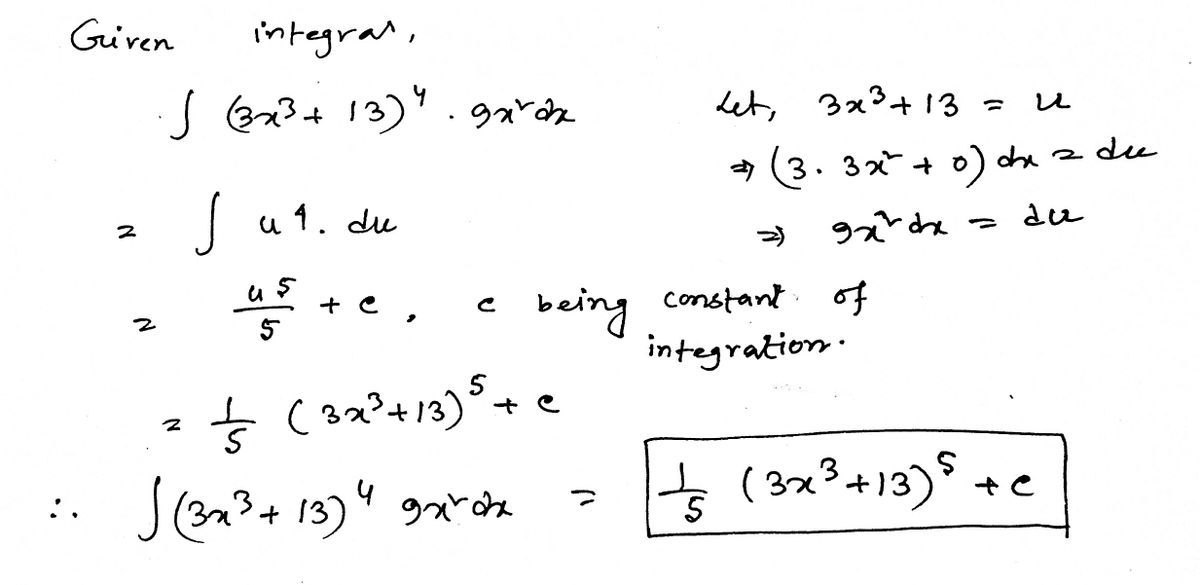 Given integral,
∫ (3x³ + 13)⁴ . 9x² dx
Let, 3x³ + 13 = u
⇒ (3. 3x² + 0) dx = du
= ∫ u⁴. du
⇒ 9x² dx = du
= u⁵/5 + c , c being constant of
integration.
= 1/5 (3x³+13)⁵ + c
∴ ∫(3x³ + 13)⁴ 9x² dx = 1/5 (3x³+13)⁵ + c